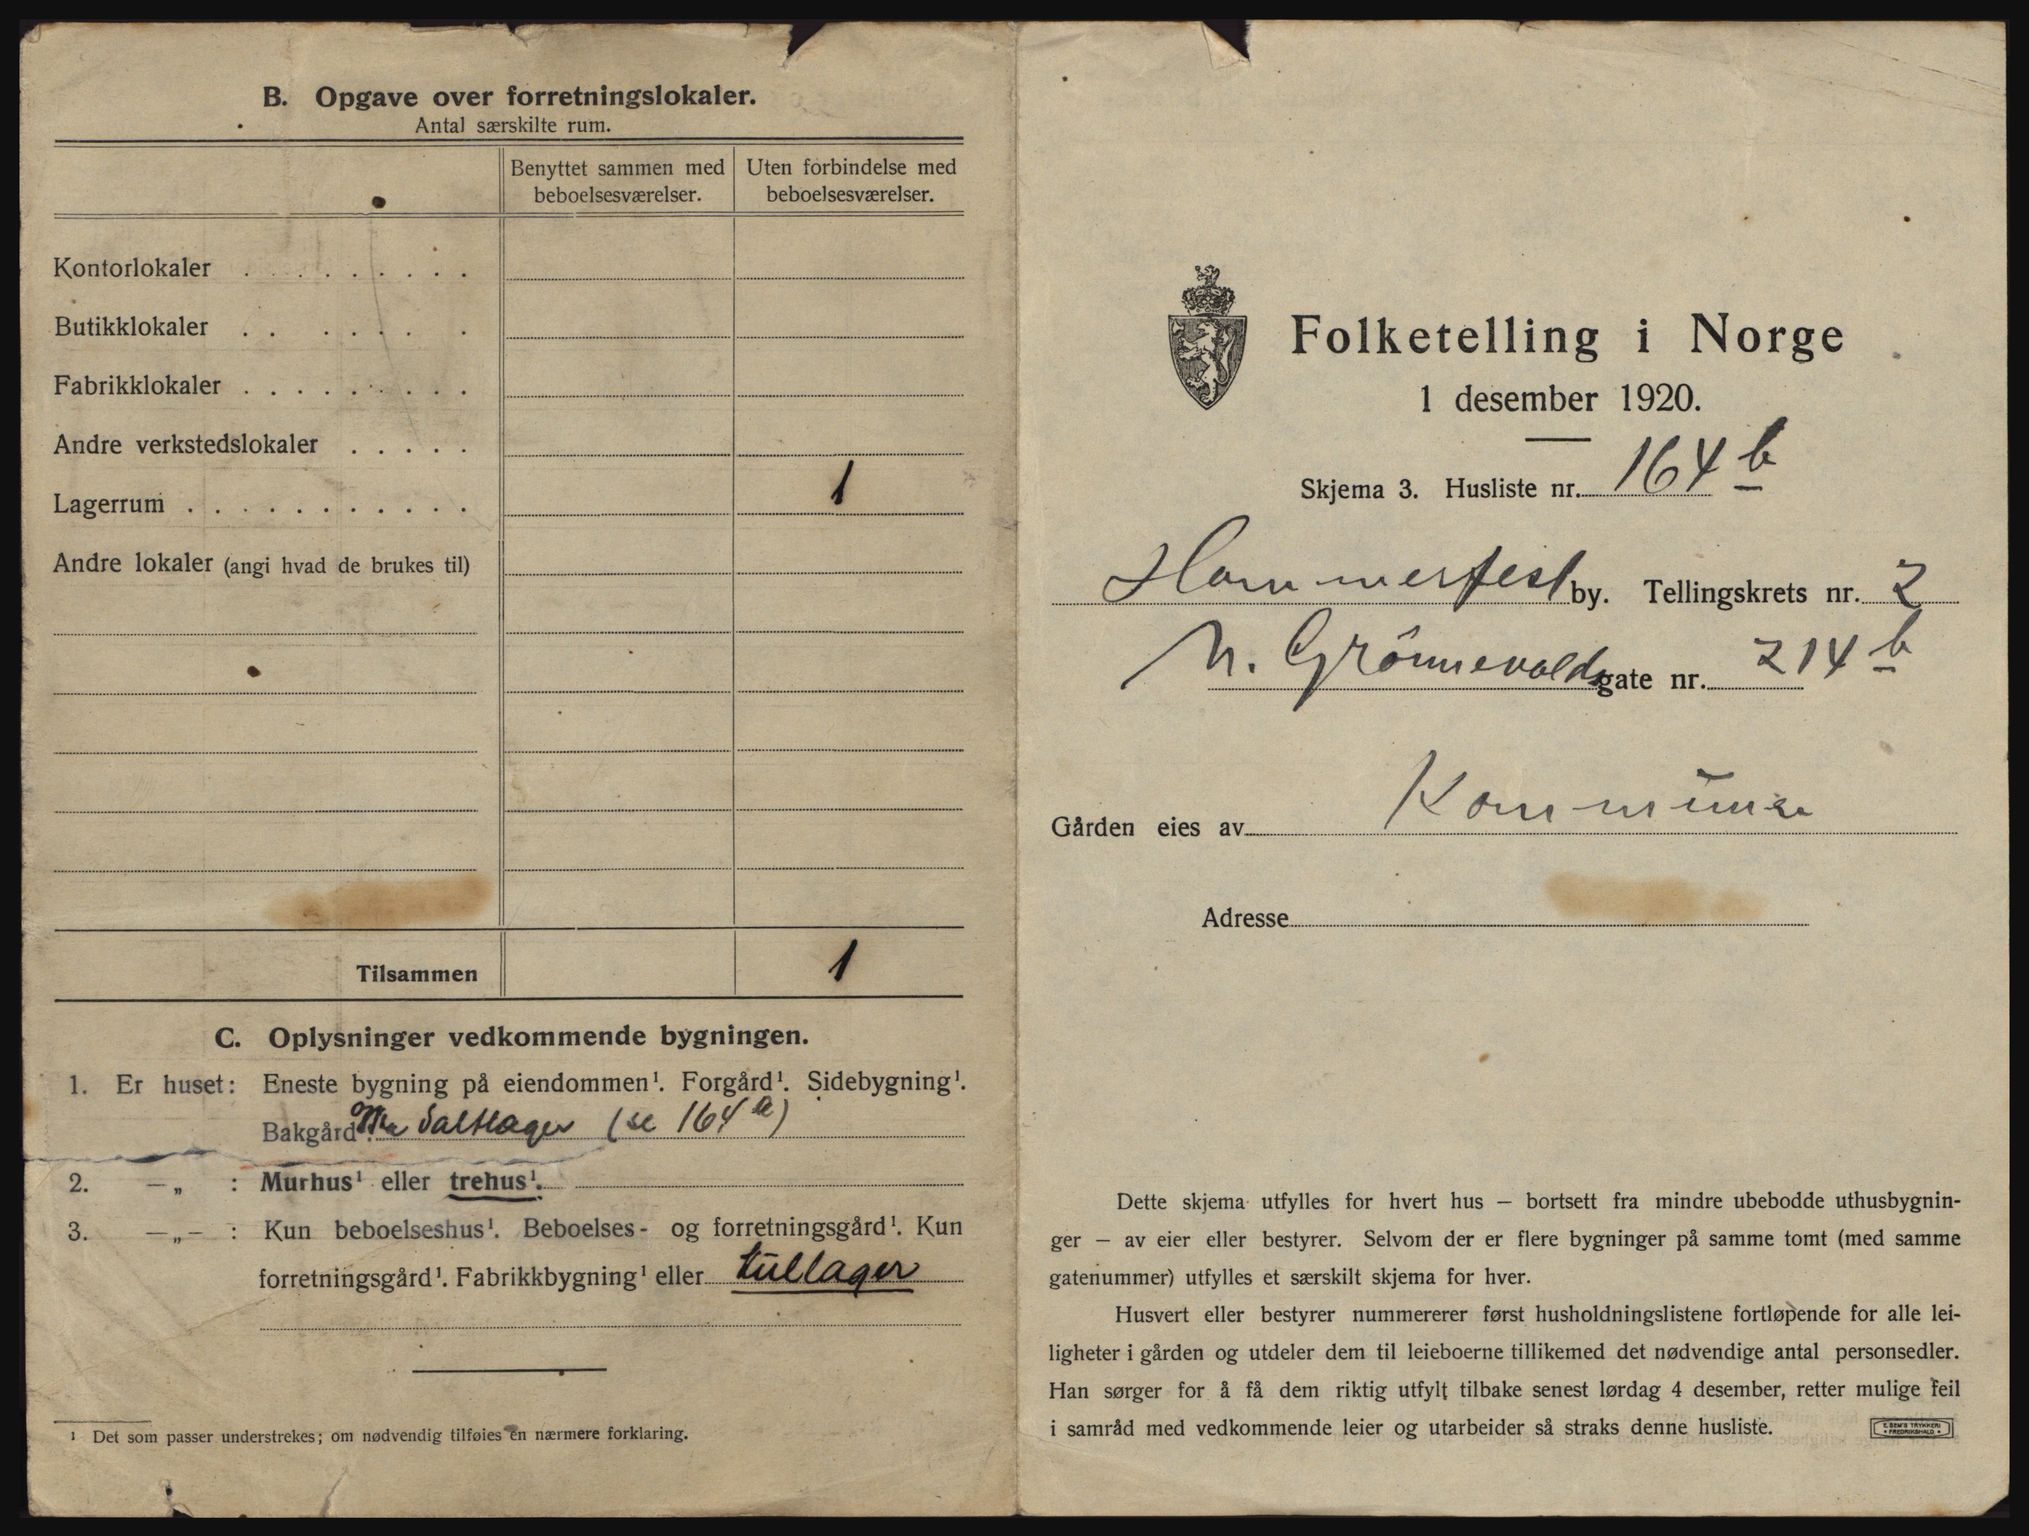 B. Opgave over forretningslokaler.
Antal særskilte rum.
Benyttet sammen med beboelsesværelser.
Uten forbindelse med beboelsesværelser.
Kontorlokaler . . . . . . . . .
Butikklokaler . . . . . . .
Fabrikklokaler . . . . . . . . .
Andre verkstedslokaler . . . . .
Lagerrum . . . . . . . . . . . 1
Andre lokaler (angi hvad de brukes til)
Tilsammen 1
C. Oplysninger vedkommende bygningen.
1. Er huset: Eneste bygning på eiendommen¹. Forgård¹. Sidebygning¹.
Bakgård¹. Saltlager (se 164 a)
2. —„ : Murhus¹ eller trehus¹.
3. —„— : Kun beboelseshus¹. Beboelses- og forretningsgård¹. Kun
forretningsgård¹. Fabrikkbygning¹ eller kullager
¹ Det som passer understrekes; om nødvendig tilføies en nærmere forklaring.
Folketelling i Norge
1 desember 1920.
Skjema 3. Husliste nr. 164 b
Hammerfest by. Tellingskrets nr. 2
N. Grønnevolds gate nr. 214 b
Gården eies av Kommune
Adresse
Dette skjema utfylles for hvert hus — bortsett fra mindre ubebodde uthusbygnin-
ger — av eier eller bestyrer. Selvom der er flere bygninger på samme tomt (med samme
gatenummer) utfylles et særskilt skjema for hver.
Husvert eller bestyrer nummererer først husholdningslistene fortløpende for alle lei-
ligheter i gården og utdeler dem til leieboerne tillikemed det nødvendige antal personsedler.
Han sørger for å få dem riktig utfylt tilbake senest lørdag 4 desember, retter mulige feil
i samråd med vedkommende leier og utarbeider så straks denne husliste.
E. SEM'S TRYKKERI
• FREDRIKSHALD •